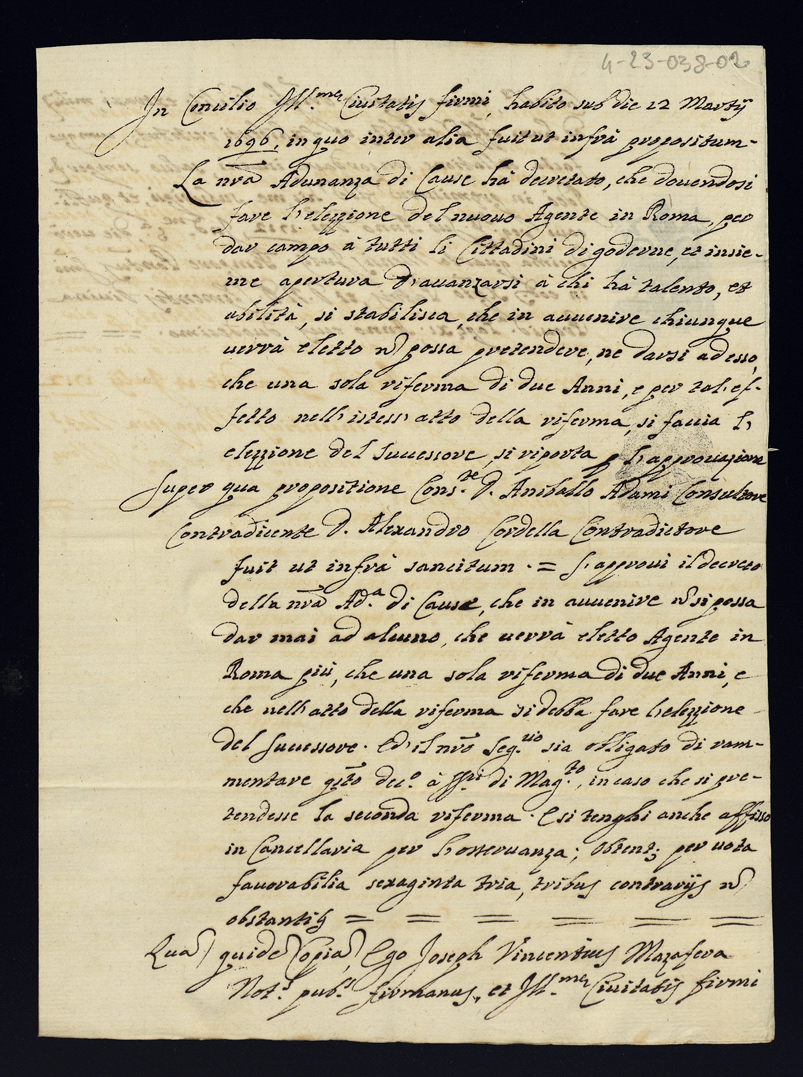 4-23-038-02
In Concilio Ill.mæ Civitatis firmi, habito sub die 12 Martij
1696, in quo inter alia fuit ut infrà propositum -
La nrã Adunanza di Cause hà decretato, che douendosi
fare l'elezzione del nuouo Agente in Roma, per
dar campo à tutti li Cittadini di goderne, et insie-
me apertura d'auanzarsi à chi hà talento, et
abilità, si stabilisca, che in auuenire chiunque
uerrà eletto nõ possa pretendere, ne darsi ad esso,
che una sola riferma di due Anni, e per tal'ef-
fetto nell'istess'atto della riferma, si faccia l'
elezzione del Successore, si riporta p l'approuazione
Super qua propositione Cons.te D. Aniballo Adami Consultore
Contradicente D. Alexandro Cordella Contradictore
fuit ut infrà sancitum . = S'approui il decreto
della nrã Ad.a di Cause, che in auuenire nõ si possa
dar mai ad alcuno, che uerrà eletto Agente in
Roma più, che una sola riferma di due Anni, e
che nell'atto della riferma si debba fare l'elezzione
del Successore . Ed il nrõ Seg.rio sia obligato di ram-
mentare q̃to dec.o à SSri di Mag.to, in caso che si pre-
tendesse la seconda riferma . E si tenghi anche affisso
in Cancellaria per l'osseruanza; obtent; per uota
fauorabilia sexaginta tria, tribus contrarijs nõ
obstantibs = = = = = = =
Quam quidem Copiam, Ego Joseph Vincentius Mazafera
Not.s pub.s firmanus, et Ill.mæ Civitatis firmi